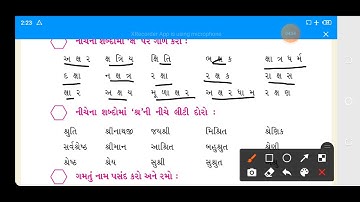 2:23
XRecorder App is using microphone
નીચેના શબ્દોમાં 'ક્ષ' પર ગોળ કરો :
અ ક્ષ ર ક્ષ ત્રિ ય ક્ષિ તિ ભ ક્ષ ક ક્ષા ત્ર ધ ર્મ
દ ક્ષા ન ક્ષ ત્ર ર ક્ષા ર ક્ષ ક રા ક્ષ સ
ક્ષા ર અ ક્ષ ય મૂ ળા ક્ષ ર અ ક્ષ ર ધા મ ર ક્ષ ણ
નીચેના શબ્દોમાં 'શ્ર'ની નીચે લીટી દોરો :
શ્રુતિ શ્રીનાથજી જયશ્રી મિશ્રિત શ્રેણિક
સર્વશ્રેષ્ઠ શ્રીમાન આશ્રિત બહુશ્રુત શ્રેણી
શ્રેષ્ઠ શ્રેય સુશ્રી સુશ્રુત
ગમતું નામ પસંદ કરો અને રમો :